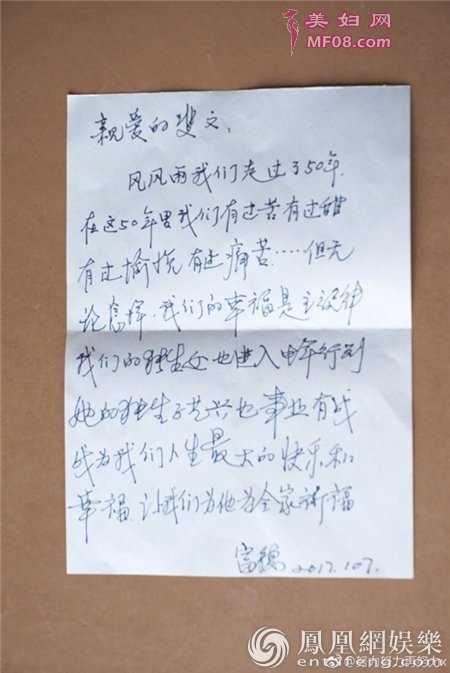 美妇网
MF08.com
親爱的文:
风风雨我们走过了50年.
在这50年里我们有过苦有过甜
有过愉悦 有过痛苦……但无
论怎样 我们的幸福是主旋律
我们的独生女也进入中年行列
她的独生子艺兴也事业有成
成为我们人生最大的快乐和
幸福.让我们为他为全家祈福
富 2017.10.7.
鳳凰網娛樂
@努力努力再努力x
ent.ifeng.com